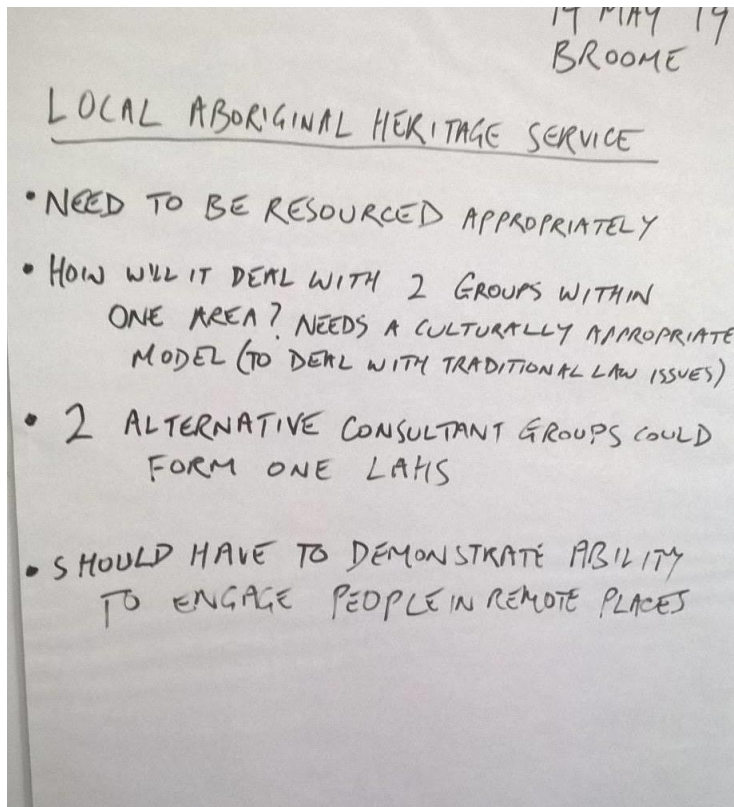 MAY 19
BROOME
LOCAL ABORIGINAL HERITAGE SERVICE
• NEED TO BE RESOURCED APPROPRIATELY
• HOW WILL IT DEAL WITH 2 GROUPS WITHIN
ONE AREA? NEEDS A CULTURALLY APPROPRIATE
MODEL (TO DEAL WITH TRADITIONAL LAW ISSUES)
• 2 ALTERNATIVE CONSULTANT GROUPS COULD
FORM ONE LAHS
• SHOULD HAVE TO DEMONSTRATE ABILITY
TO ENGAGE PEOPLE IN REMOTE PLACES